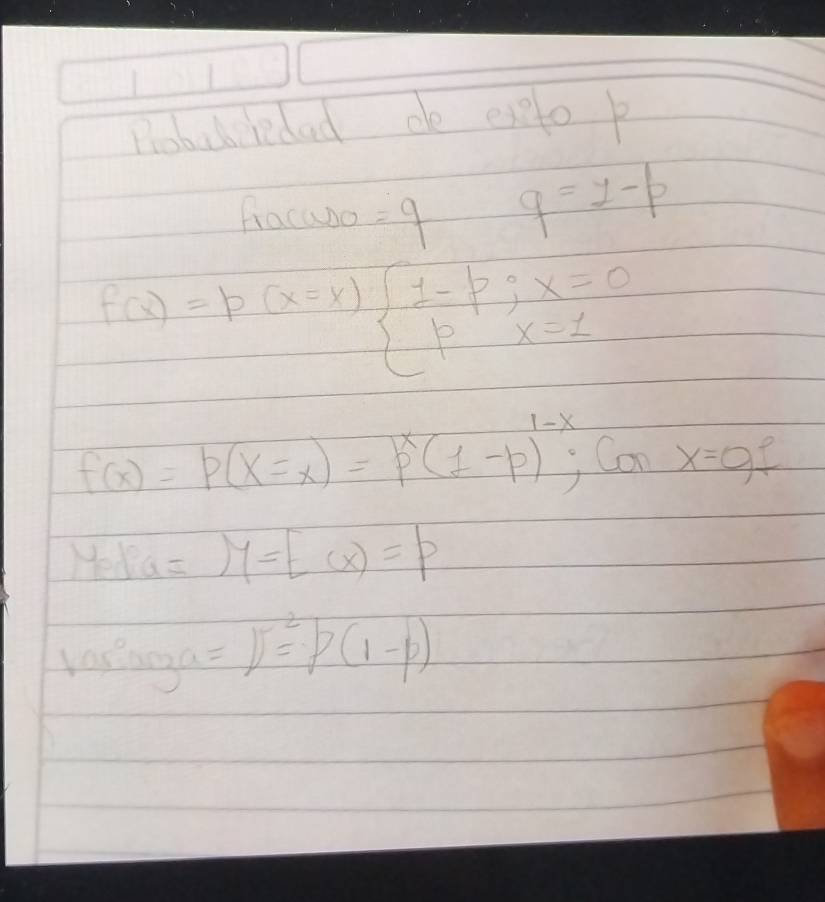 Probabilidad de exito p
fracaso = q    q = 1 - p
f(x) = p (x = x) { 1 - p ; x = 0
p    x = 1
f(x) = p(X = x) = p^x (1 - p)^{1-x} ; Con x = 0,1
Media = M = E (x) = p
varianza = V^2 = p(1 - p)